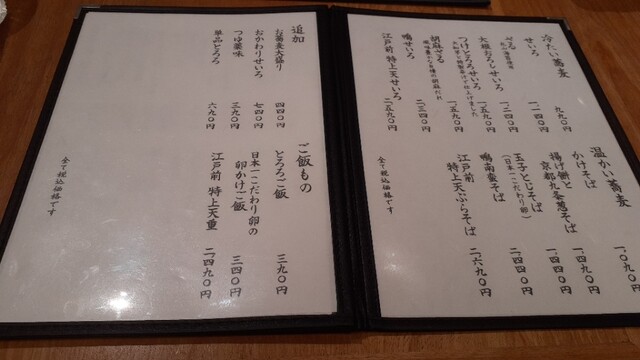 冷たい蕎麦
せいろ
九九〇円
ざる
一、一四〇円
大根おろしせいろ
一、二四〇円
つけとろろせいろ
一、五九〇円
胡麻ざる
鴨せいろ
二、三四〇円
江戸前 特上天せいろ
二、五九〇円
温かい蕎麦
かけそば
一、〇九〇円
揚げ餅と
京都九条葱そば
一、四九〇円
玉子とじそば
(日本一こだわり卵)
鴨南蛮そば
二、四四〇円
江戸前
特上天ぷらそば
二、六九〇円
全て税込価格です
追加
お蕎麦大盛り
四四〇円
おかわりせいろ
七四〇円
つゆ薬味
三九〇円
単品とろろ
六九〇円
ご飯もの
とろろご飯
三九〇円
日本一こだわり卵の
卵かけご飯
三四〇円
江戸前 特上天重
二、四九〇円
全て税込価格です